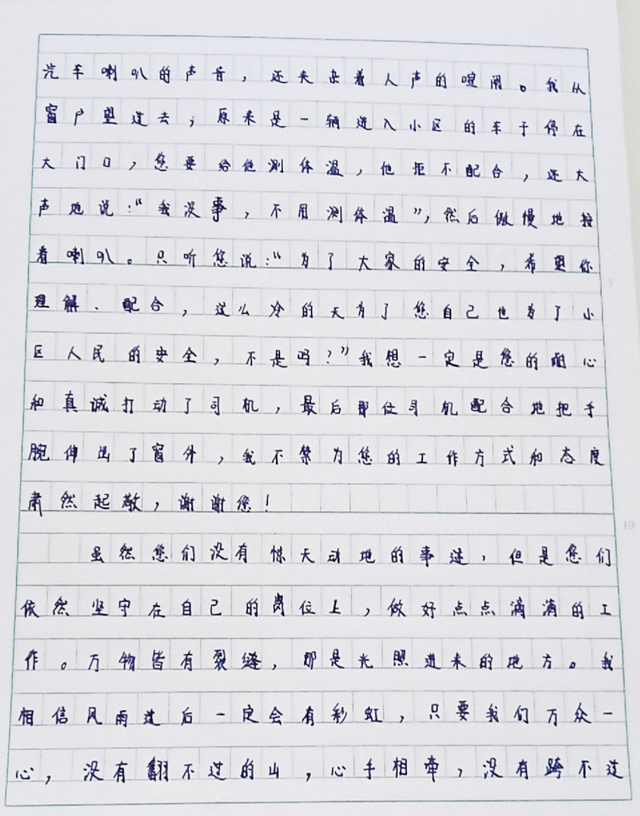 汽车喇叭的声音，还夹杂着人声的喧闹。我从
窗户望过去，原来是一辆进入小区的车子停在
大门口，您要给他测体温，他拒不配合，还大
声地说：“我没事，不用测体温”，然后傲慢地按
着喇叭。只听您说：“为了大家的安全，希望你
理解、配合，这么冷的天为了您自己也为了小
区人民的安全，不是吗？”我想一定是您的耐心
和真诚打动了司机，最后那位司机配合地把手
腕伸出了窗外，我不禁为您的工作方式和态度
肃然起敬，谢谢您！
虽然您们没有惊天动地的事迹，但是您们
依然坚守在自己的岗位上，做好点点滴滴的工
作。万物皆有裂缝，那是光照进来的地方。我
相信风雨过后一定会有彩虹，只要我们万众一
心，没有翻不过的山，心手相牵，没有跨不过
5
10